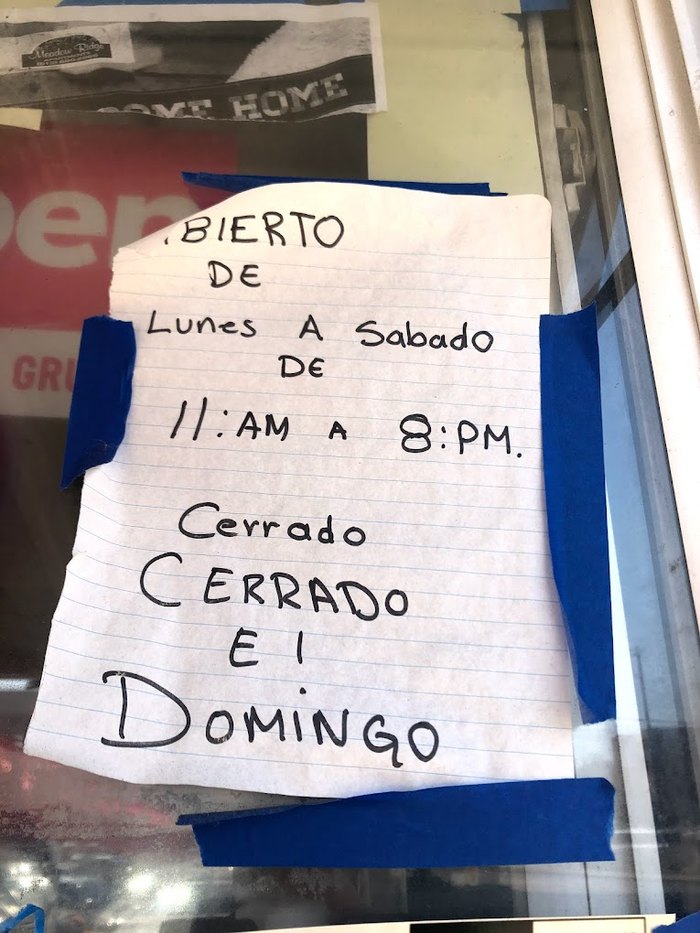 Meadow Ridge
COME HOME
pen
GRU
.BIERTO
DE
Lunes A Sabado
DE
11:AM A 8:PM.
Cerrado
CERRADO
El
DOMiNGO